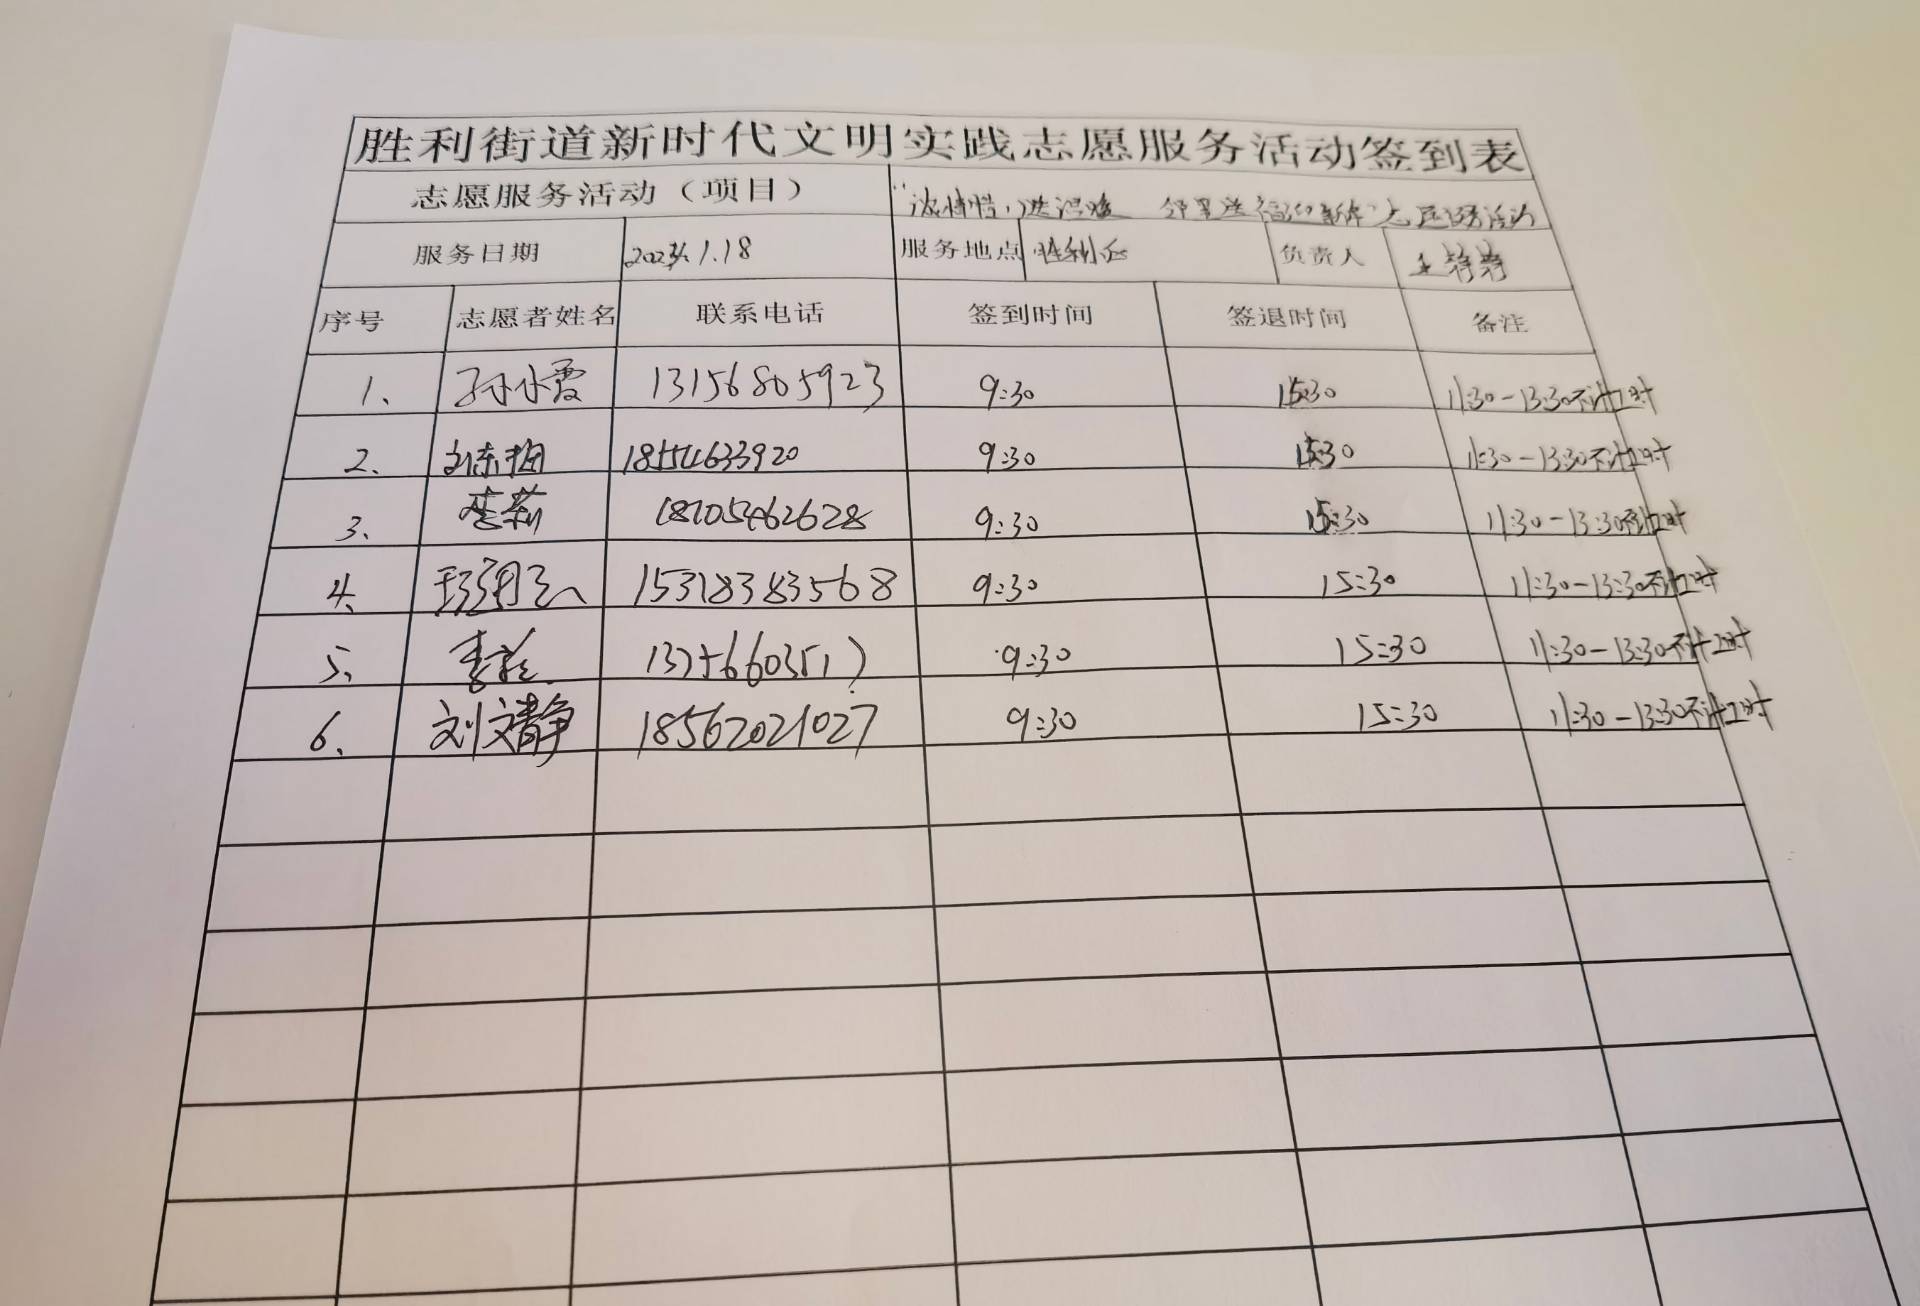 胜利街道新时代文明实践志愿服务活动签到表
志愿服务活动（项目） 送温暖 邻里送福迎新年"志愿服务活动
服务日期 1.18 服务地点 胜利 负责人
序号 志愿者姓名 联系电话 签到时间 签退时间 备注
1、 孙小霞 13156805923 9:30 15:30 11:30-13:30不计工时
2、 18554633920 9:30 15:30 11:30-13:30不计工时
3、 李莉 18705462628 9:30 15:30 11:30-13:30不计工时
4、 15318383568 9:30 15:30 11:30-13:30不计工时
5、 9:30 15:30 11:30-13:30不计工时
6、 刘文静 18562021027 9:30 15:30 11:30-13:30不计工时